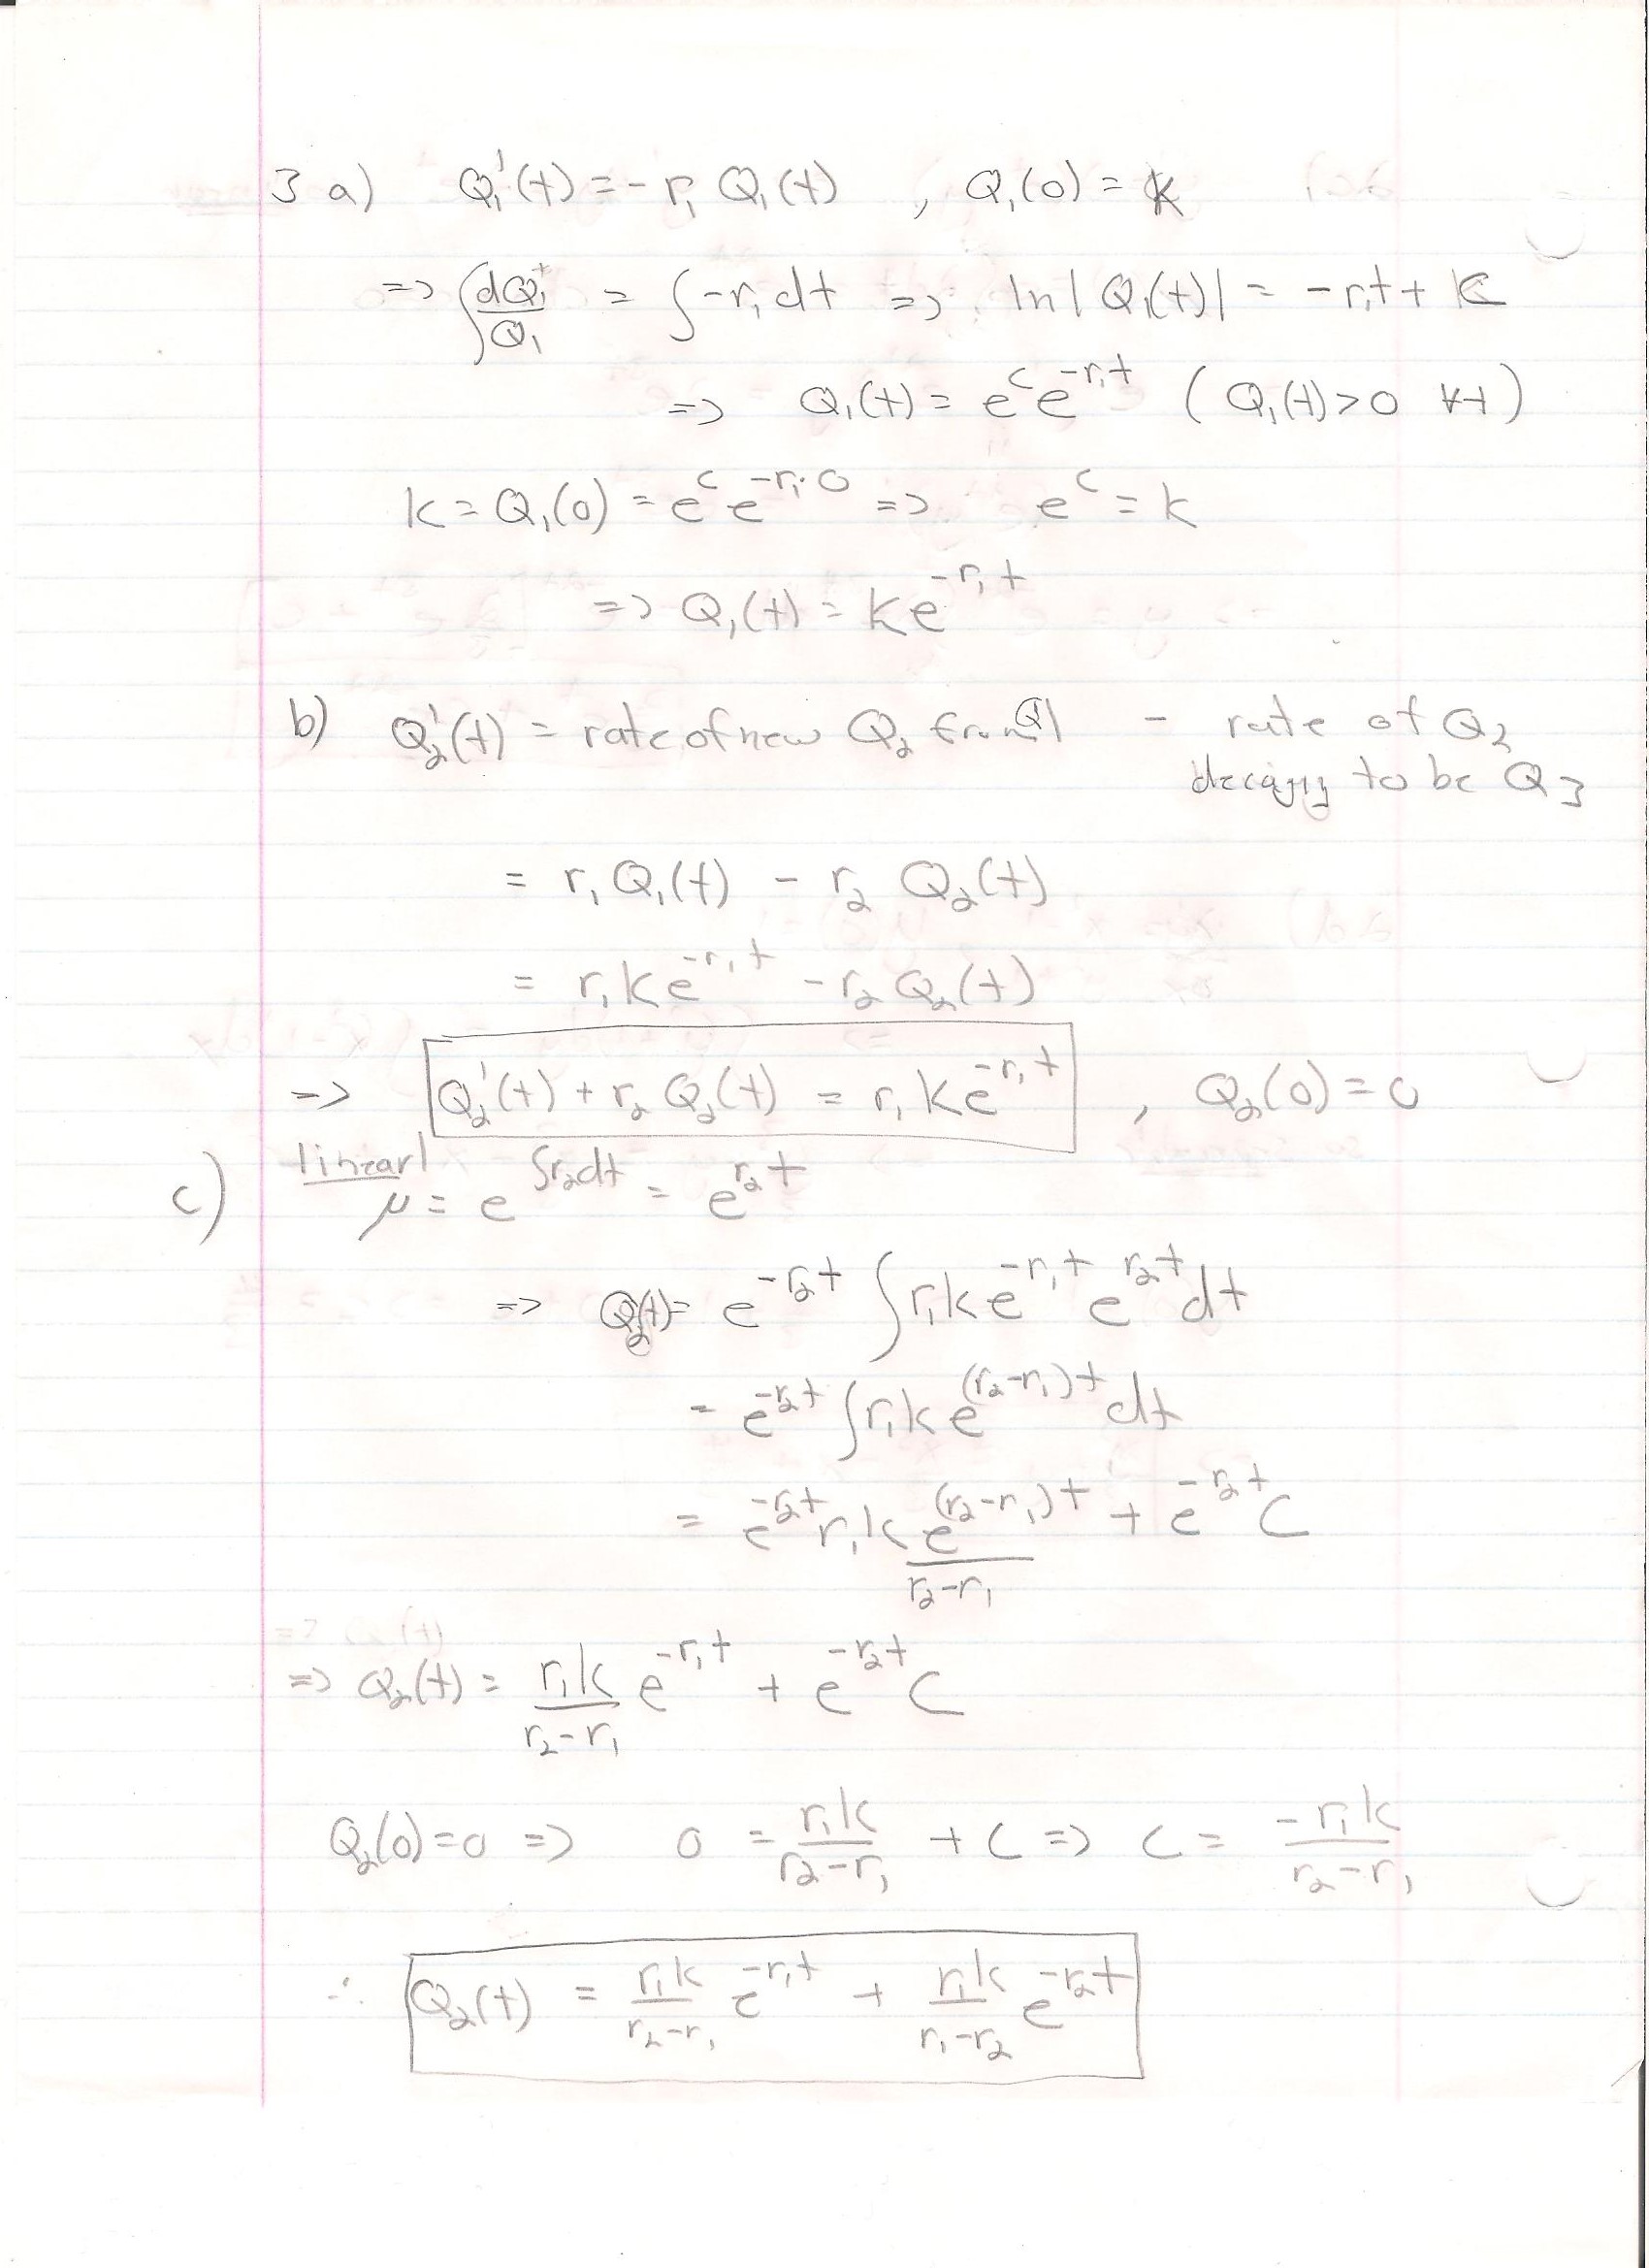 3 a) Q₁'(t) = - r₁ Q₁(t) , Q₁(0) = k
=> ∫ dQ₁/Q₁ = ∫ -r₁ dt => ln | Q₁(t)| = - r₁t + C
=> Q₁(t) = e^c e^(-r₁t) ( Q₁(t) > 0 ∀t )
k = Q₁(0) = e^c e^(-r₁·0) => e^c = k
=> Q₁(t) = ke^(-r₁t)
b) Q₂'(t) = rate of new Q₂ from Q1 - rate of Q₂
decaying to be Q3
= r₁ Q₁(t) - r₂ Q₂(t)
= r₁ke^(-r₁t) - r₂ Q₂(t)
=> Q₂'(t) + r₂ Q₂(t) = r₁ ke^(-r₁t) , Q₂(0) = 0
linear!
c) μ = e^(∫r₂dt) = e^(r₂t)
=> Q₂(t) = e^(-r₂t) ∫ r₁ke^(-r₁t) e^(r₂t) dt
= e^(-r₂t) ∫ r₁k e^((r₂-r₁)t) dt
= e^(-r₂t) r₁k e^((r₂-r₁)t)/(r₂-r₁) + e^(-r₂t) C
=> Q₂(t) = r₁k/(r₂-r₁) e^(-r₁t) + e^(-r₂t) C
Q₂(0) = 0 => 0 = r₁k/(r₂-r₁) + C => C = -r₁k/(r₂-r₁)
∴ Q₂(t) = r₁k/(r₂-r₁) e^(-r₁t) + r₁k/(r₁-r₂) e^(-r₂t)